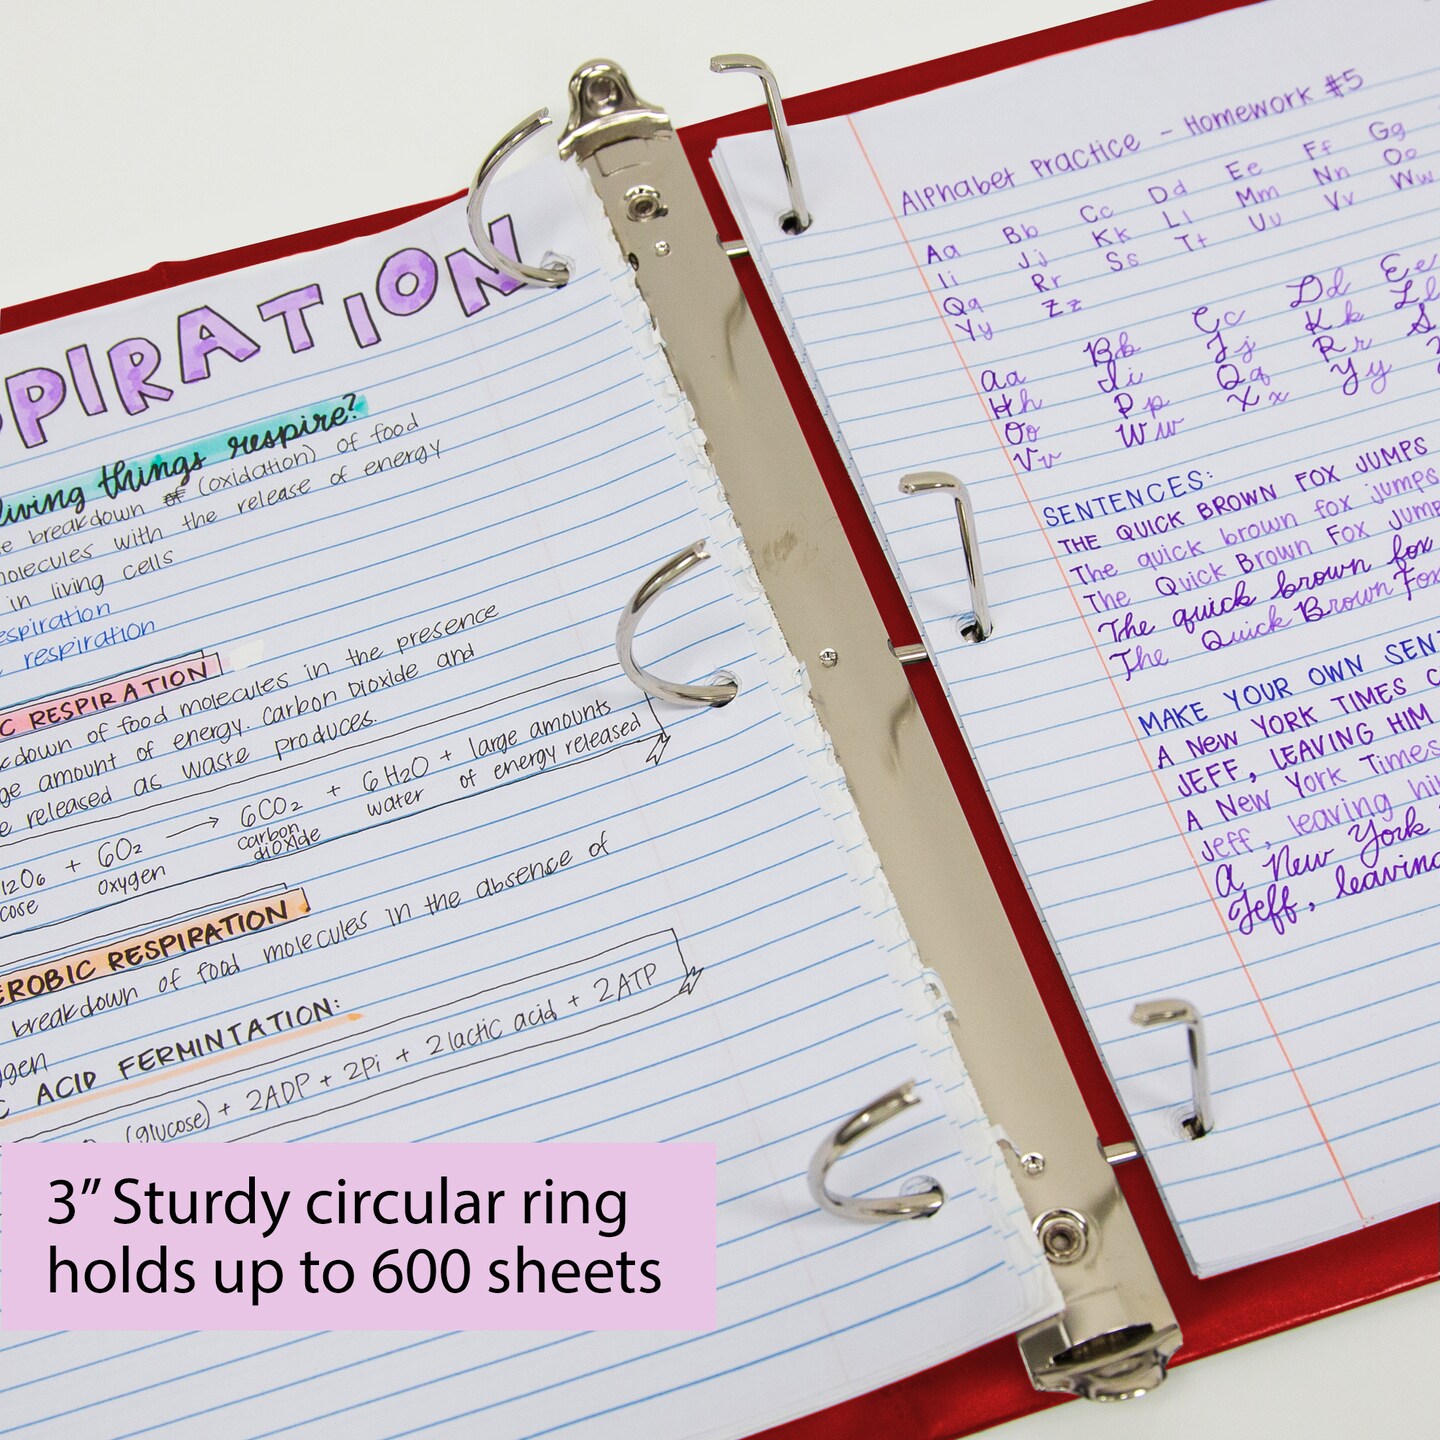 PIRATION
living things respire?
breakdown of (oxidation) of food
molecules with the release of energy
in living cells
respiration
respiration
C RESPIRATION
down of food molecules in the presence
amount of energy. Carbon Dioxide and
released as waste produces.
+ 6O₂ → 6CO₂ + 6H₂O + large amounts
oxygen carbon dioxide water of energy released
EROBIC RESPIRATION
breakdown of food molecules in the absence of
ACID FERMINTATION:
(glucose) + 2ADP + 2Pi + 2 lactic acid + 2ATP
3” Sturdy circular ring
holds up to 600 sheets
Alphabet Practice - Homework #5
Aa Bb Cc Dd Ee Ff Gg
Ii Jj Kk Ll Mm Nn Oo
Qq Rr Ss Tt Uu Vv Ww
Yy Zz
Aa Bb Cc Dd Ee
Hh Ii Jj Kk Ll
Oo Pp Qq Rr S
Vv Ww Xx Yy
SENTENCES:
THE QUICK BROWN FOX JUMPS
The quick brown fox jumps
The Quick Brown Fox Jump
The quick brown fox
The Quick Brown Fox
MAKE YOUR OWN SENT
A NEW YORK TIMES C
JEFF, LEAVING HIM
A New York Times
Jeff, leaving hi
A New York
Jeff, leaving